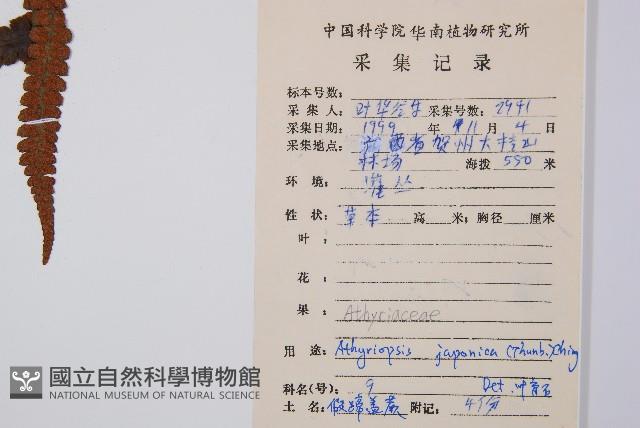 中国科学院华南植物研究所
采集记录
标本号数:
采集人: 叶华谷 采集号数: 2941
采集日期: 1999 年 11 月 4 日
采集地点: 广西省贺州大桂山
林场 海拨 550 米
环境: 灌丛
性状: 草本 高 米; 胸径 厘米
叶:
花:
果: Athyriaceae
用途: Athyriopsis japonica (Thunb.) Ching
科名(号): 9 Det. 叶育石
土名: 假蹄盖蕨 附记: 4份
國立自然科學博物館
NATIONAL MUSEUM OF NATURAL SCIENCE